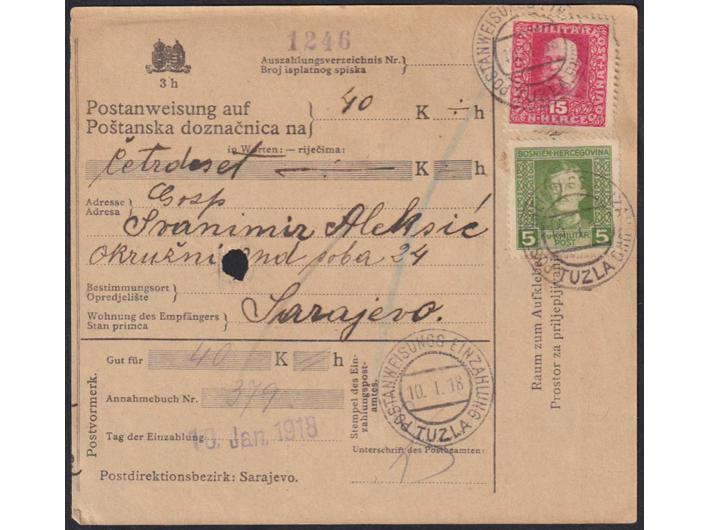 1246
Auszahlungsverzeichnis Nr.
Broj isplatnog spiska
3 h
Postanweisung auf
Poštanska doznačnica na
40 K ÷ h
in Worten: — riječima:
Četrdeset K h
Adresse
Adresa
Gosp
Svanimir Aleksić
Okružni sud soba 24
Bestimmungsort
Opredjelište
Sarajevo.
Wohnung des Empfängers
Stan primca
Postvormerk.
Gut für 40 K h
Annahmebuch Nr. 379
Tag der Einzahlung
10. Jan. 1918
Stempel des Ein-
zahlungspost-
amtes.
POSTANWEISUNGS EINZAHLUNG
10. I. 18
TUZLA
Unterschrift des Postbeamten:
Postdirektionsbezirk: Sarajevo.
POSTANWEISUNGS EIN
MILITAR
POST
15
BOSNIEN-HERCEGOVINA
5 K.u.K. MILITAR 5
POST
TUZLA
Raum zum Aufkleben
Prostor za priljepljivanje